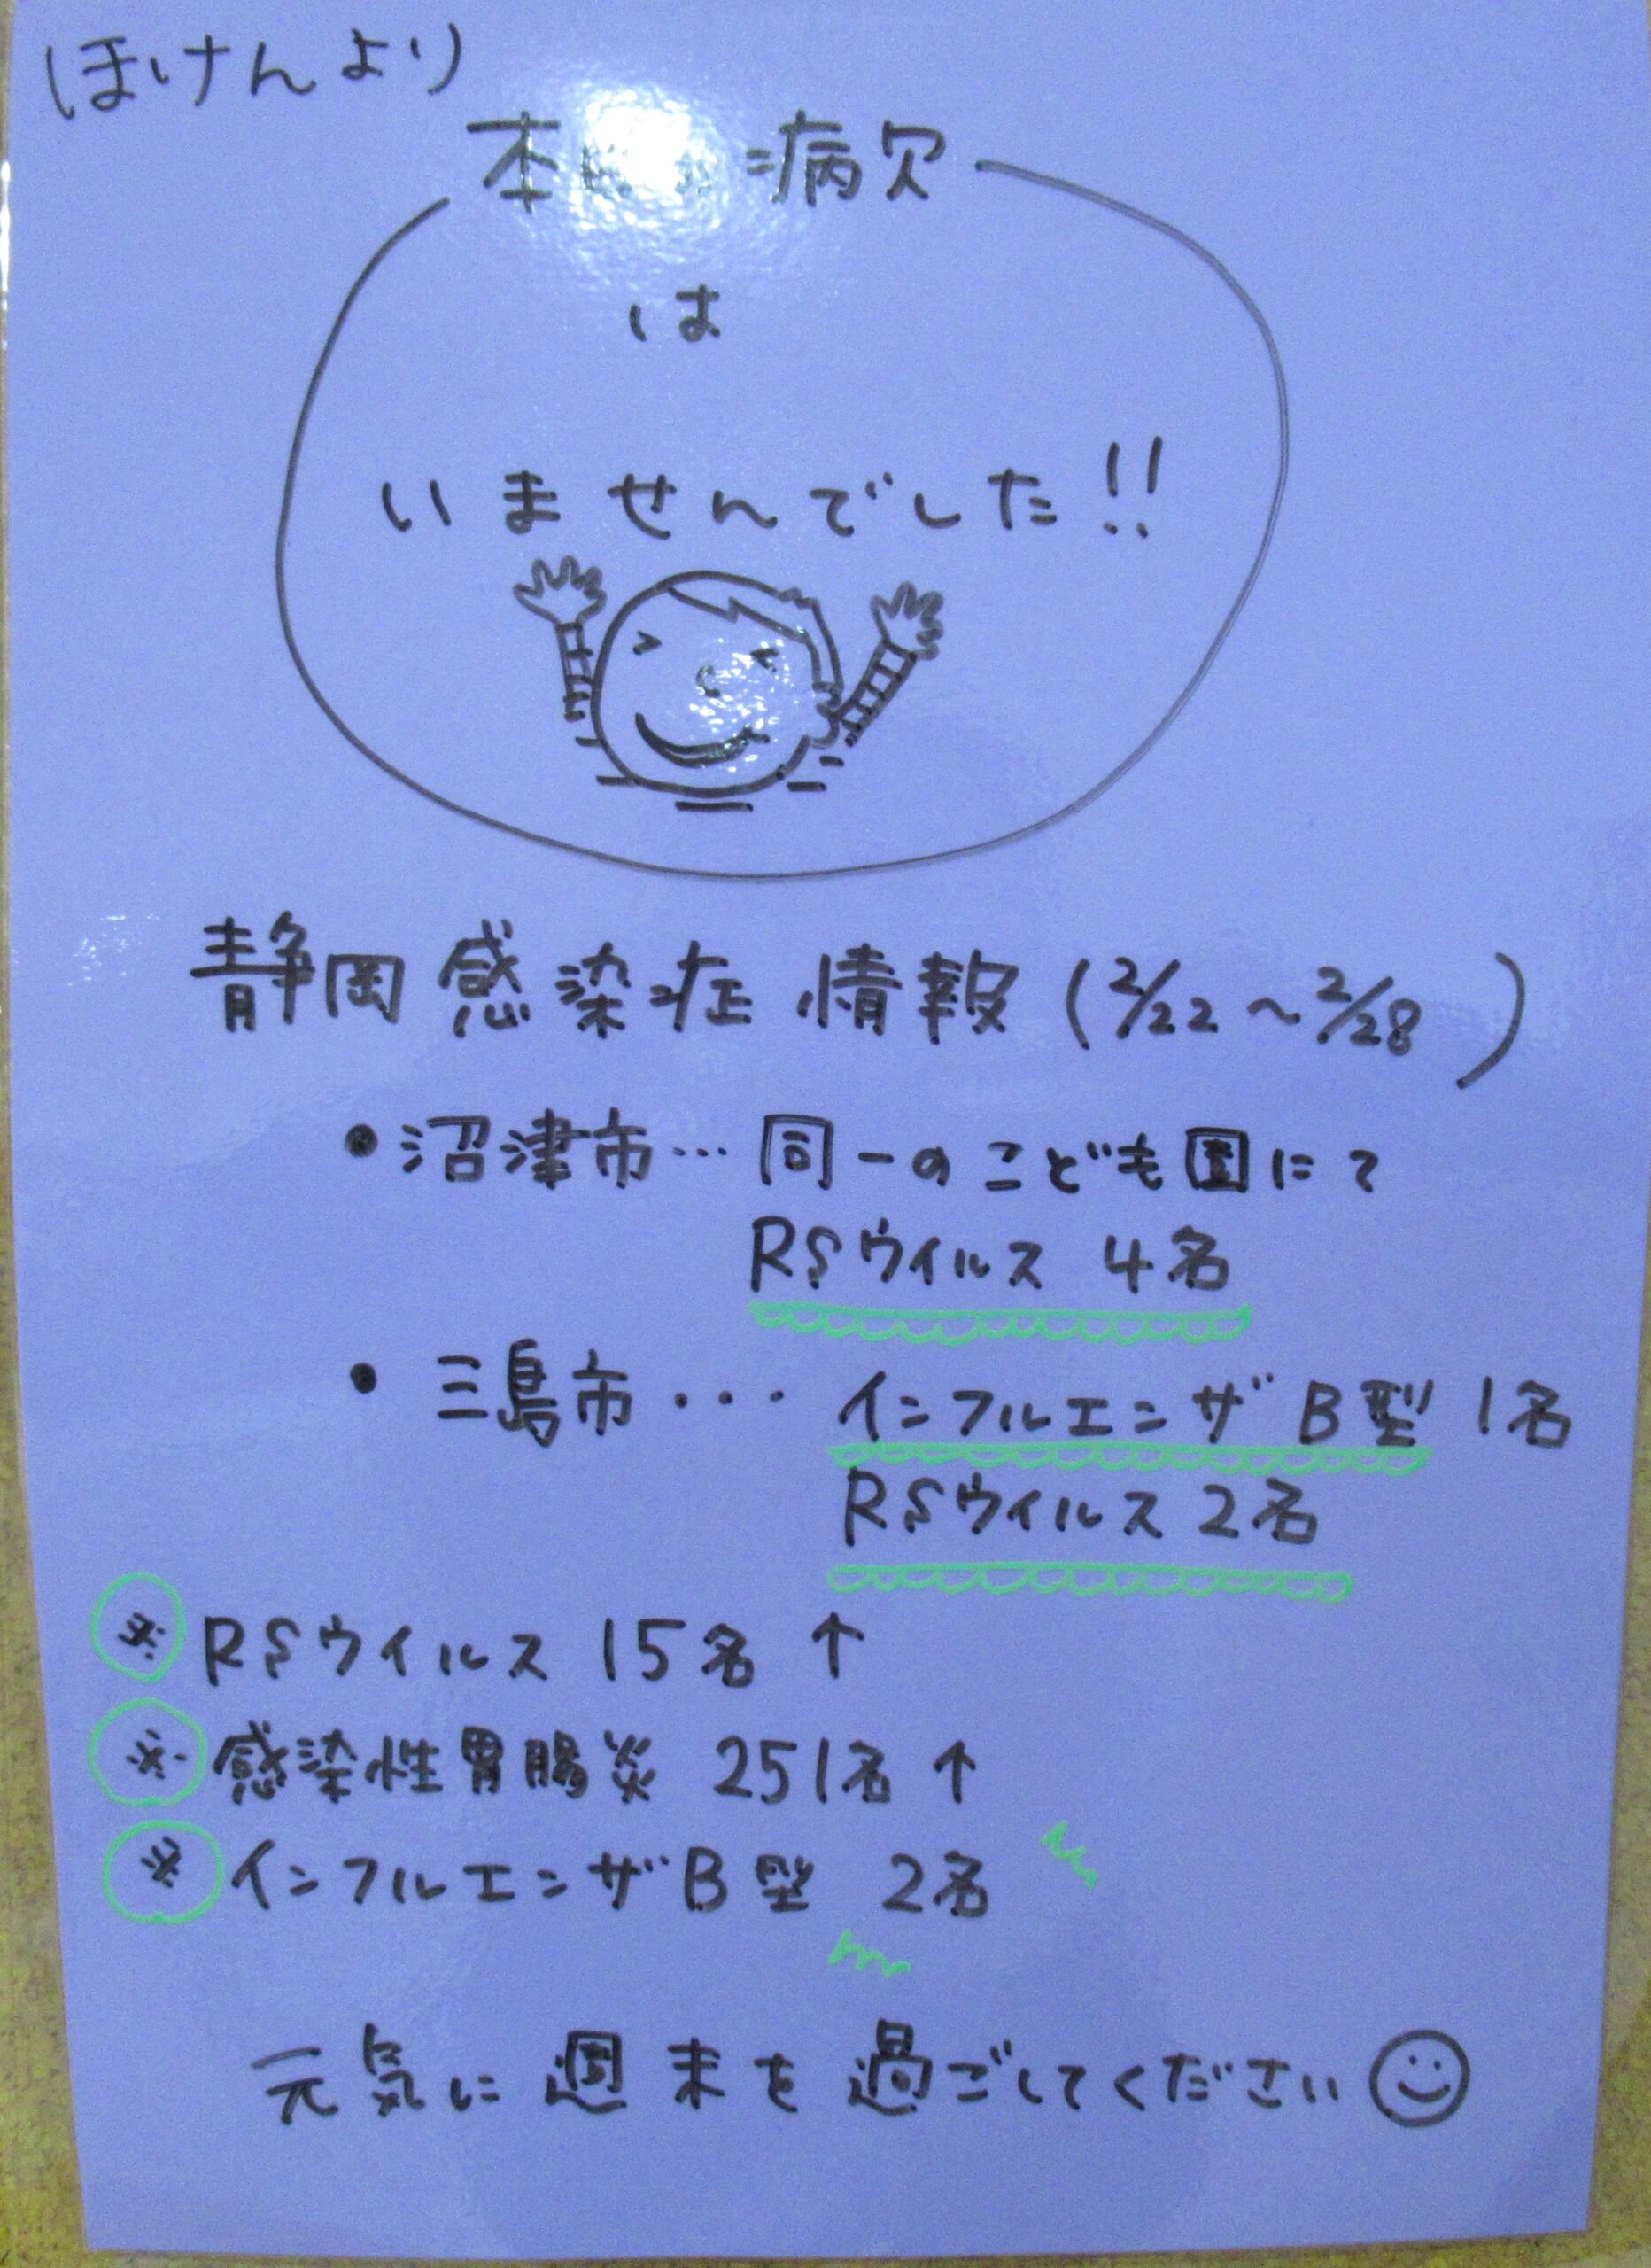 ほけんより
本 病欠
は
いませんでした!!
静岡感染症情報(2/22~2/28)
・沼津市…同一のこども園にて
RSウイルス 4名
・三島市・・・インフルエンザB型 1名
RSウイルス 2名
※RSウイルス 15名 ↑
※感染性胃腸炎 251名 ↑
※インフルエンザB型 2名
元気に週末を過ごしてください